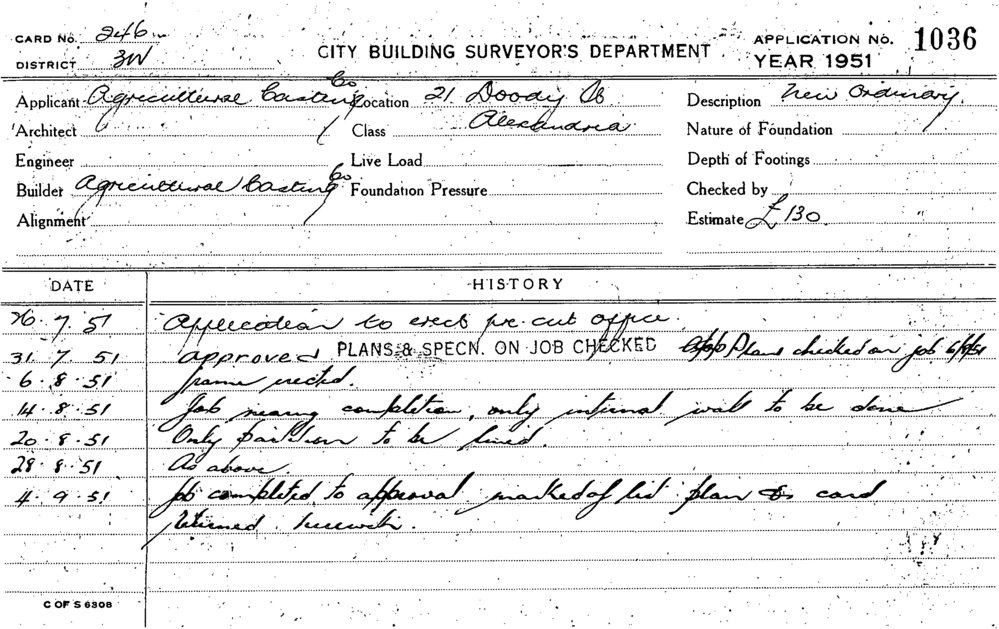 CARD No. 246
DISTRICT 3W
CITY BUILDING SURVEYOR'S DEPARTMENT
APPLICATION No. 1036
YEAR 1951
Applicant Agricultural Casting Co Location 21 Doody St Description New Ordinary.
Architect Class Alexandria Nature of Foundation
Engineer Live Load Depth of Footings
Builder Agricultural Casting Co Foundation Pressure Checked by
Alignment Estimate £130.
DATE HISTORY
26.7.51 Application to erect pre-cut office.
31.7.51 Approved PLANS & SPECN. ON JOB CHECKED Plans checked on job 6/8/51
6.8.51 frame erected.
14.8.51 Job nearing completion, only internal wall to be done
20.8.51 Only partition to be lined.
28.8.51 As above.
4.9.51 Job completed to approval marked of list plan & card
returned herewith.
C OF S 6308